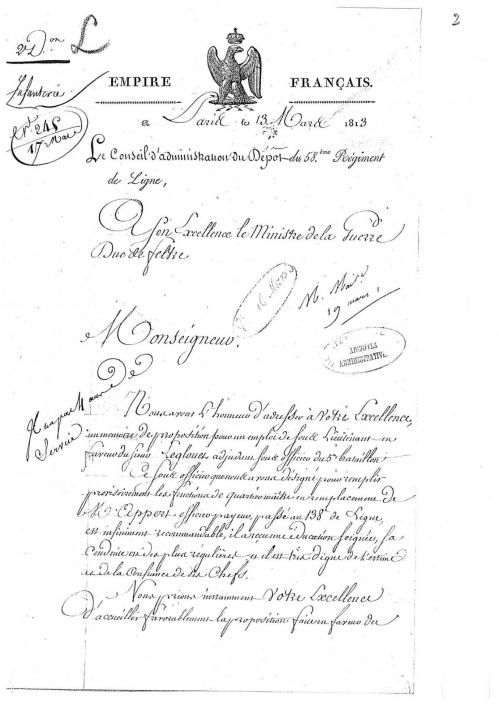 2
2e Don L
Infanterie
EMPIRE FRANÇAIS.
No 245
17 Mars
a Paris le 13 Mars 1813
Le Conseil d'administration du Dépôt du 58.ème Régiment
de Ligne,
A Son Excellence le Ministre de la Guerre
Duc de Feltre
16 Mars
19 mars
Monseigneur.
ARCHIVES
ADMINISTRATIVES
Service
Nous avons l'honneur d'adresser à Votre Excellence,
un mémoire de proposition pour un emploi de sous Lieutenant en
faveur du Sieur Leglouet adjudant sous officier du 5e bataillon
Ce sous officier que nous avons désigné pour remplir
provisoirement les fonctions de quartier maitre en remplacement de
M. Appert officier payeur, passé au 138e de Ligne,
est infiniment recommandable, il a reçu une éducation soignée, sa
conduite est des plus regulières et il est très digne de l'estime
et de la Confiance de ses Chefs.
Nous prions instamment Votre Excellence
d'accueillir favorablement la proposition faite en faveur de